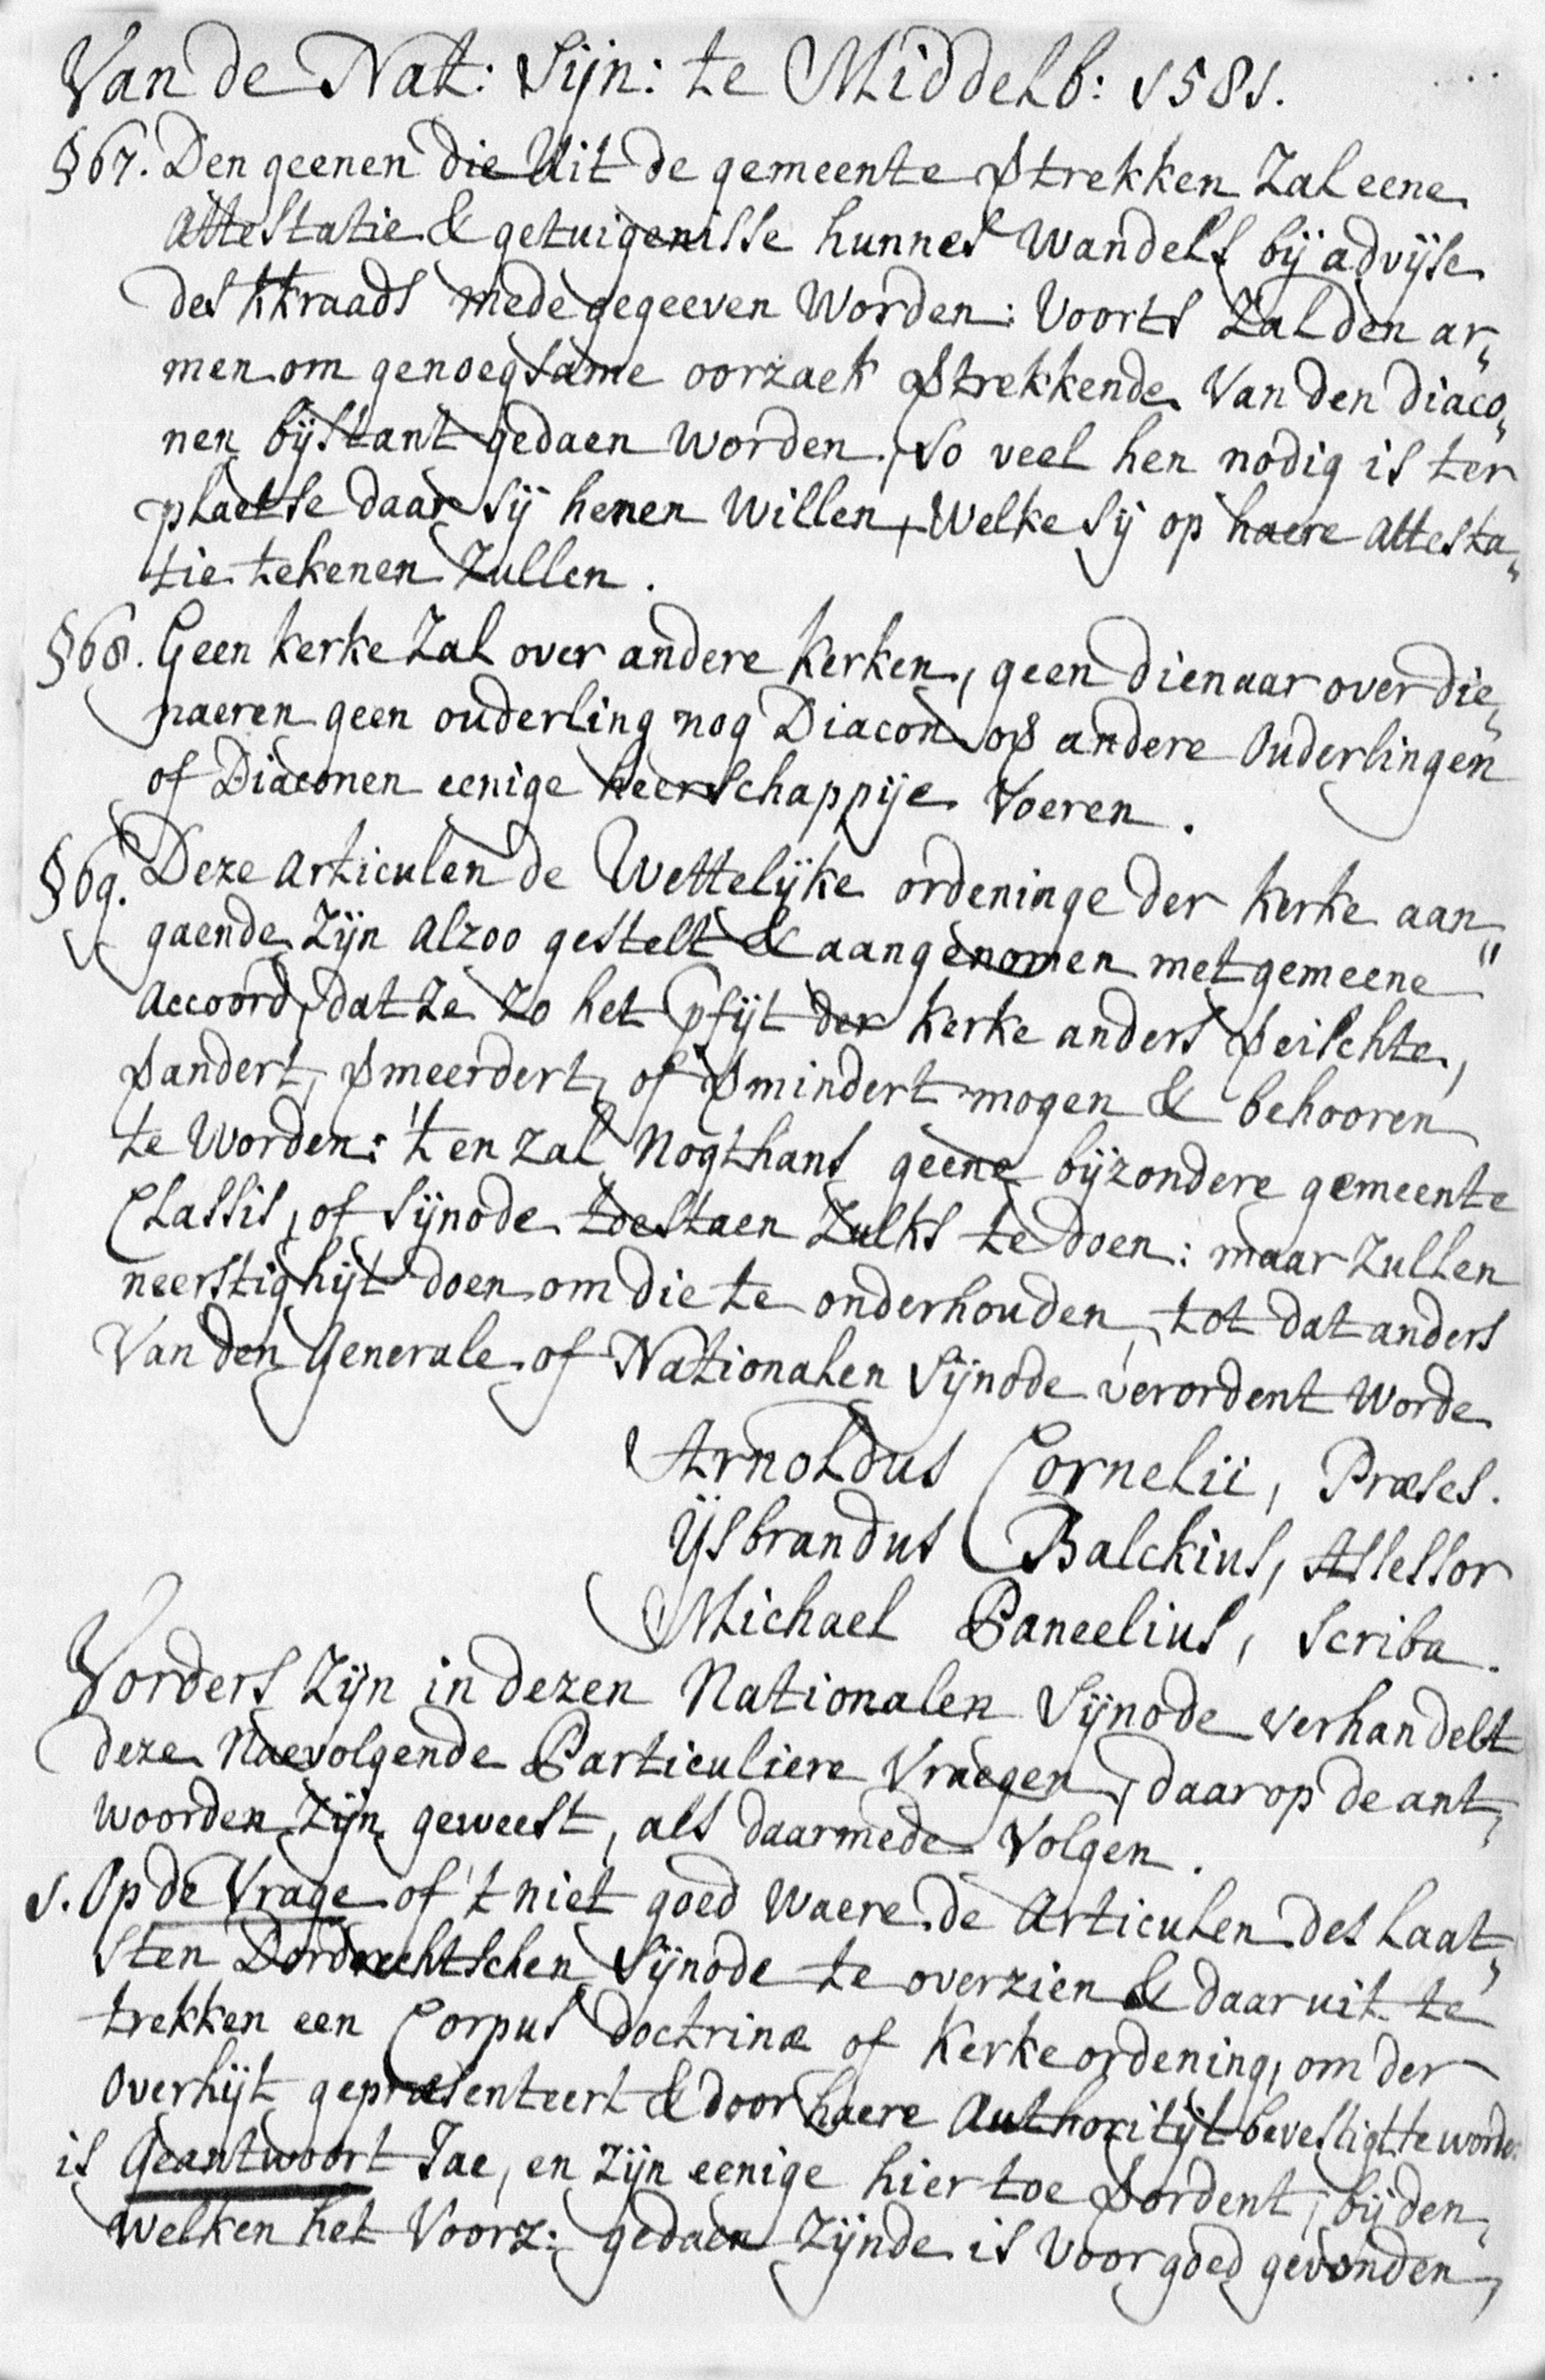 Van de Nat: Sijn: te Middelb: 1581.
§67. Den geenen die Uit de gemeente ꝟtrekken Zal eene
Attestatie & getuigenisse hunnes Wandels bij advijse
des KKraads mede gegeeven Worden: Voorts Zal den ar„
men om genoegsame oorzaek ꝟtrekkende Van den Diaco„
nen bijstant gedaen worden, so veel hen nodig is ter
plaetse daar sij henen Willen, Welke sij op haere Attesta„
tie tekenen Zullen.
§68. Geen Kerke Zal over andere Kerken, geen Dienaar over die„
naeren geen ouderling nog Diacon oꝟ andere Ouderlingen
of Diaconen eenige heerschappije Voeren.
§69. Deze Articulen de Wettelijke ordeninge der Kerke aan„
gaende Zijn Alzoo gestelt & aangenomen met gemeene
Accoord, dat Ze Zo het pfijt der Kerke anders ꝟeischte,
ꝟandert, ꝟmeerdert, of ꝟmindert mogen & behooren
te Worden: 't en zal Nogthans geene bijzondere gemeente
Classis, of Sijnode toestaen Zulks te doen: maar Zullen
neerstighijt doen om die te onderhouden, tot dat anders
Van den Generale of Nationalen Sijnode verordent Worde
Arnoldus Cornelii, Præses.
IJsbrandus Balckius, Assessor
Michael Paneelius, Scriba.
Vorders Zijn in dezen Nationalen Sijnode verhandelt
deze Naevolgende Particuliere Vraegen, daar op de ant„
woorden Zijn geweest, als daarmede Volgen.
1. Op de Vrage of 't niet goed Waere de Articulen des Laat„
sten Dordrechtschen Sijnode te overzien & daar uit te
trekken een Corpus Doctrinæ of Kerkeordening, om der
Overhijt gepræsenteert & door haere Authoritijt bevestigt te worde.
is Geantwoort Jae, en Zijn eenige hier toe ꝟordent, bij den„
welken het Voorz: gedaen Zijnde is Voor goed gevonden,